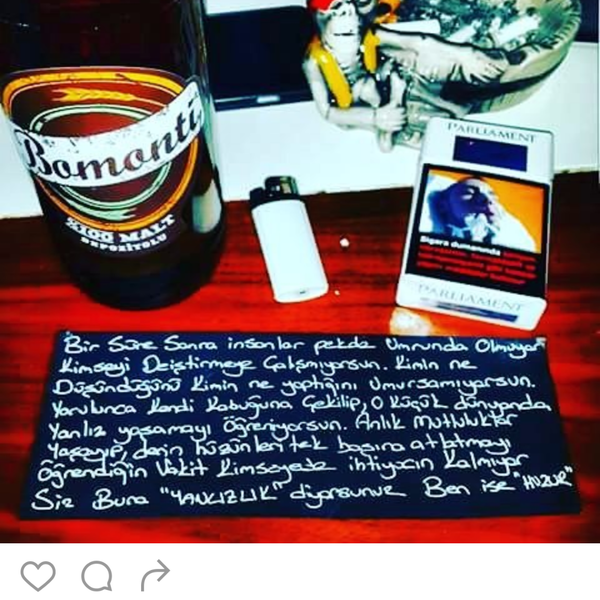 Bomonti
%100 MALT
DEPOZİTOLU
PARLIAMENT
Sigara dumanında
PARLIAMENT
Bir Süre Sonra insanlar pekde Umrunda Olmuyor
Kimseyi Deiştirmeye Çalışmıyorsun. Kimin ne
Düşündüğünü Kimin ne yaptığını Umursamıyorsun.
Yorulunca Kendi Kabuğuna Çekilip, O Küçük dünyanda
Yanlız yaşamayı öğreniyorsun. Anlık Mutluluklar
Yaşayıp, derin hüzünleri tek başına atlatmayı
Öğrendiğin Vakit Kimseyede ihtiyacın Kalmıyor
Siz Buna "YANLIZLIK" diyorsunuz Ben ise "HUZUR"